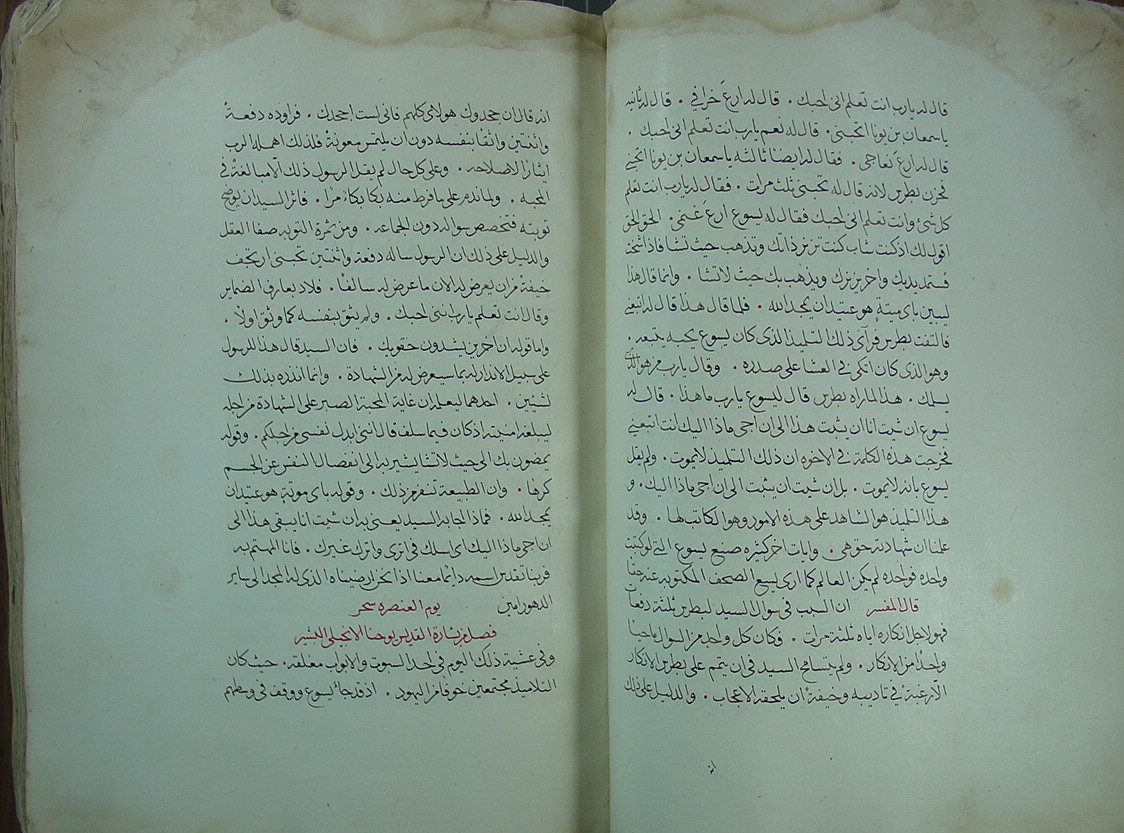 قال له يارب انت تعلم انى احبك . قال له ارع خرافي . قال له ثانيه
ياسمعان بن يونا اتحبنى . قال له نعم يارب انت تعلم انى احبك .
قال له ارع نعاجى . فقال له ايضا ثالثه ياسمعان بن يونا اتحبنى
فحزن بطرس لانه قال له تحبنى ثلث مرات . فقال له يارب انت تعلم
كل شى وانت تعلم انى احبك فقال له يسوع ارع غنمى . الحق الحق
اقول لك اذ كنت شاب كنت تزنر ذاتك وتذهب حيث تشا فاذا شخت
فستمد يديك واخر يزنرك ويذهب بك حيث لا تشا . وانما قال هذا
ليبين باى ميتة هو عتيد ان يمجد الله . فلما قال هذا قال له اتبعنى
فالتفت بطرس فرآى ذلك التلميذ الذى كان يسوع يحبه يتبعه .
وهو الذى كان اتكى في العشا على صدره . وقال يارب من هو الذى
يسلمك . هذا لما راه بطرس قال ليسوع يارب ما هذا . قال له
يسوع ان شيت انا ان يثبت هذا الى ان اجى ماذا اليك انت اتبعنى
فخرجت هذه الكلمة في الاخوه ان ذلك التلميذ لا يموت . ولم يقل
يسوع بانه لا يموت . بل ان شيت ان يثبت الى ان اجى ماذا اليك . و
هذا التلميذ هو الشاهد على هذه الامور وهو الكاتب لها . وقد
علمنا ان شهادته حق هى . وايات اخر كثيره صنع يسوع التى لو كتبت
واحده فواحده لم يكن العالم كما ارى يسع الصحف المكتوبه عنه حقا
قال المفسر ان السبب في سوال السيد لبطرس ثلثة دفعات
فهو لاجل انكاره اياه ثلثة مرات . فكان كل واحد من السوال ماحيا
واحدا من الانكار . ولم يتسامح السيد في ان يتم على بطرس الانكار
الا رغبة في تاديبه وخيفة ان يلحقه الاعجاب . والدليل على ذلك
انه قال ان جحدوك هولاى كلهم فانى لست اجحدك . فراوده دفعة
واثنتين واثقا بنفسه دون ان يلتمس معونة فلذلك اهمله الرب
ايثارا لاصلاحه . وعلى كل حال لم يقل الرسول ذلك الا مبالغة في
المحبه . ولما ندم على ما فرط منه بكا بكاءً مرا . فاثر السيد ان يوضح
توبته فتخصص سواله دون الجماعه . ومن ثمرة التوبه صفا العقل
والدليل على ذلك ان الرسول ساله دفعة واثنتين تحبنى ارتجف
خيفة من ان يعرض له الان ما عرض له سالفا . فلاد بعارف الضماير
وقال انت تعلم يارب اننى احبك . ولم يثق بنفسه كما وثق اولا .
واما قوله ان اخرين يشدون حقويك . فان السيد قال هذا للرسول
على سبيل الانذار له بما سيعرض له من الشهادة . وانما انذره بذلك
لشيئين . احدهما ليعلم ان غاية المحبة الصبر على الشهادة من اجله
ليبلغه امنيته اذ كان فيما سلف قال اننى ابدل نفسى من اجلكم . وقوله
يمضون بك الى حيث لا تشا يشير به الى انفصال النفس عن الجسم
كرها . وان الطبيعة تنفر من ذلك . وقوله باى موتة هو عتيد ان
يمجد الله . فماذا اجابه السيد يعنى به ان شيت انا يبقى هذا الى
ان اجى ماذا اليك اى اسلك في اثرى واترك غيرك . فانا المهتم به
فربنا تقدس اسمه دائما معنا اذا نحن ارضيناه الذى له المجد الى ساير
الدهور امين يوم العنصره سحر
فصل من بشارة القديس يوحنا الانجيلى البشير
وفى عشية ذلك اليوم في احد السبوت والابواب مغلقه . حيث كان
التلاميذ مجتمعين خوفا من اليهود . اذ قد جاء يسوع ووقف في وسطهم